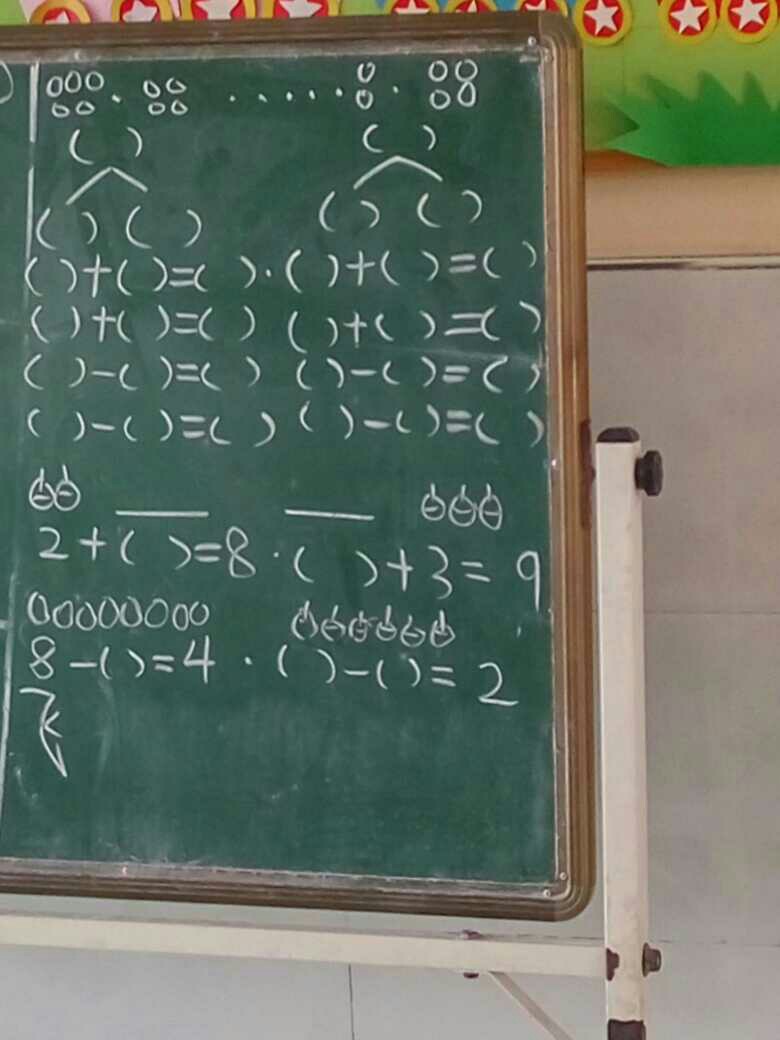 ( ) ( )
( ) ( ) ( ) ( )
( )+( )=( ) · ( )+( )=( )
( )+( )=( ) ( )+( )=( )
( )-( )=( ) ( )-( )=( )
( )-( )=( ) ( )-( )=( )
2+( )=8 · ( )+3=9
8-( )=4 · ( )-( )=2